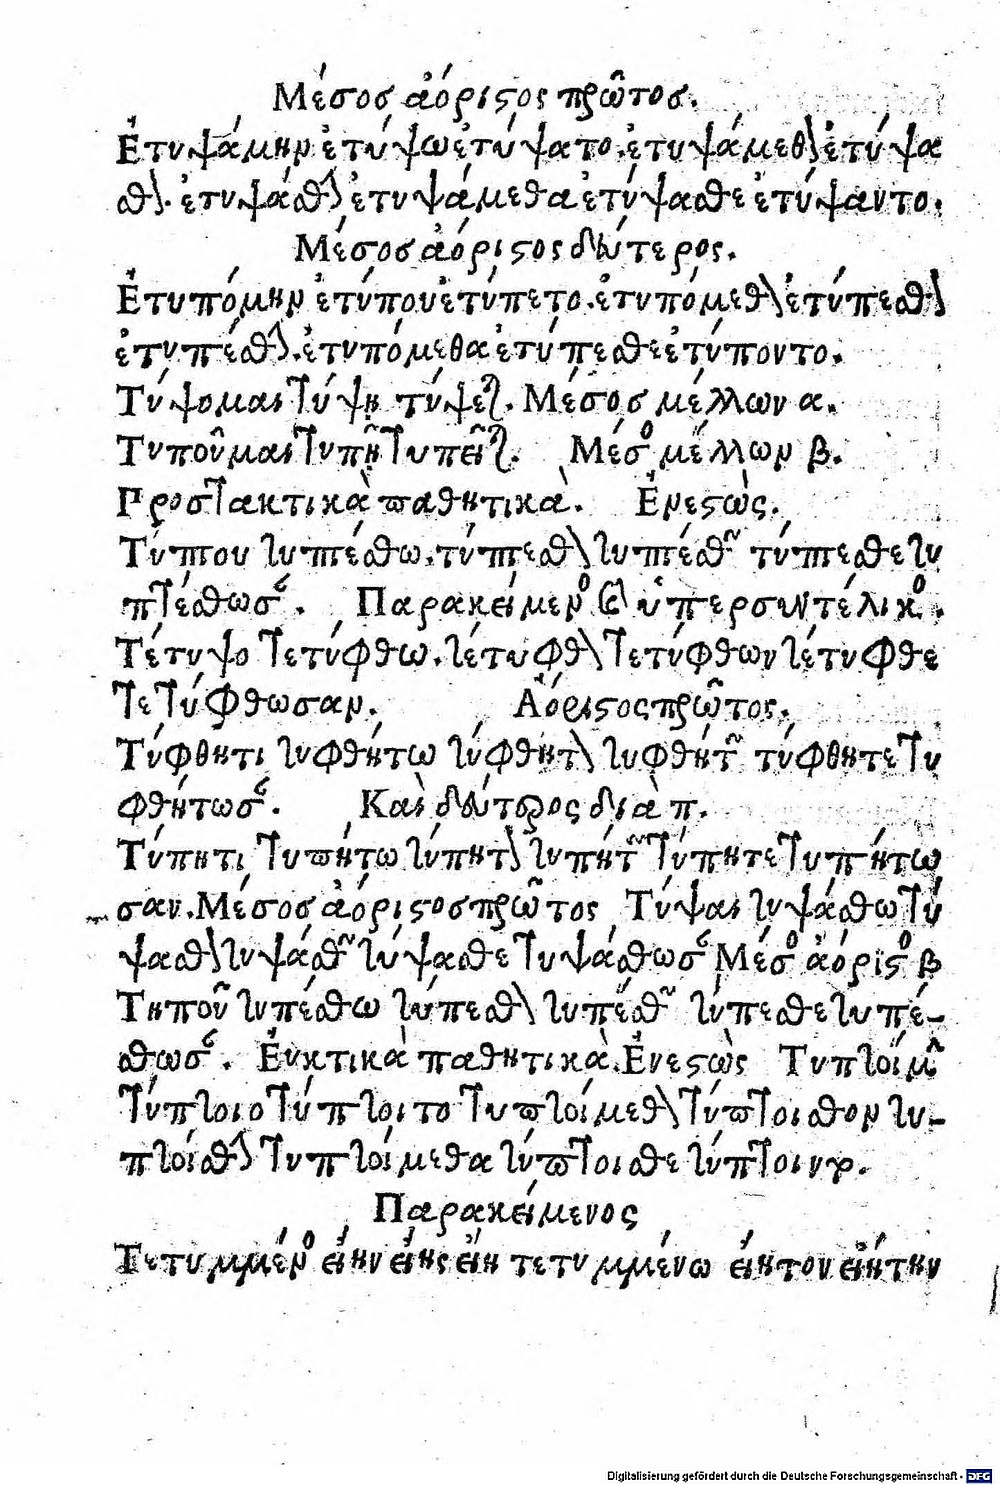 Μέσος ἀόριστος πρῶτος.
Ἐτυψάμην ἐτύψω ἐτύψατο. ἐτυψάμεθον ἐτύψα
σθον. ἐτυψάσθην ἐτυψάμεθα ἐτύψασθε ἐτύψαντο.
Μέσος ἀόριστος δεύτερος.
Ἐτυπόμην ἐτύπου ἐτύπετο. ἐτυπόμεθον ἐτύπεσθον
ἐτυπέσθην. ἐτυπόμεθα ἐτύπεσθε ἐτύποντο.
Τύψομαι τύψῃ τύψεται. Μέσος μέλλων α.
Τυποῦμαι τυπῇ τυπεῖται. Μέσος μέλλων β.
Προστακτικὰ παθητικὰ. Ἐνεστὼς.
Τύπτου τυπτέσθω. τύπτεσθον τυπτέσθων τύπτεσθε τυ
πτέσθωσαν. Παρακείμενος καὶ ὑπερσυντέλικος.
Τέτυψο τετύφθω. τέτυφθον τετύφθων τέτυφθε
τετύφθωσαν. Ἀόριστος πρῶτος.
Τύφθητι τυφθήτω τύφθητον τυφθήτων τύφθητε τυ
φθήτωσαν. Καὶ δεύτερος διὰ π.
Τύπητι τυπήτω τύπητον τυπήτων τύπητε τυπήτω
σαν. Μέσος ἀόριστος πρῶτος Τύψαι τυψάσθω τύ
ψασθον τυψάσθων τύψασθε τυψάσθωσαν Μέσος ἀόριστος β
Τηποῦ τυπέσθω τύπεσθον τυπέσθων τύπεσθε τυπέ-
σθωσαν. Εὐκτικὰ παθητικὰ. Ἐνεστὼς Τυπτοίμην
τύπτοιο τύπτοιτο τυπτοίμεθον τύπτοισθον τυ-
πτοίσθην τυπτοίμεθα τύπτοισθε τύπτοιντο.
Παρακείμενος
Τετυμμένος εἴην εἴης εἴη τετυμμένω εἴητον εἰήτην
Digitalisierung gefördert durch die Deutsche Forschungsgemeinschaft - DFG